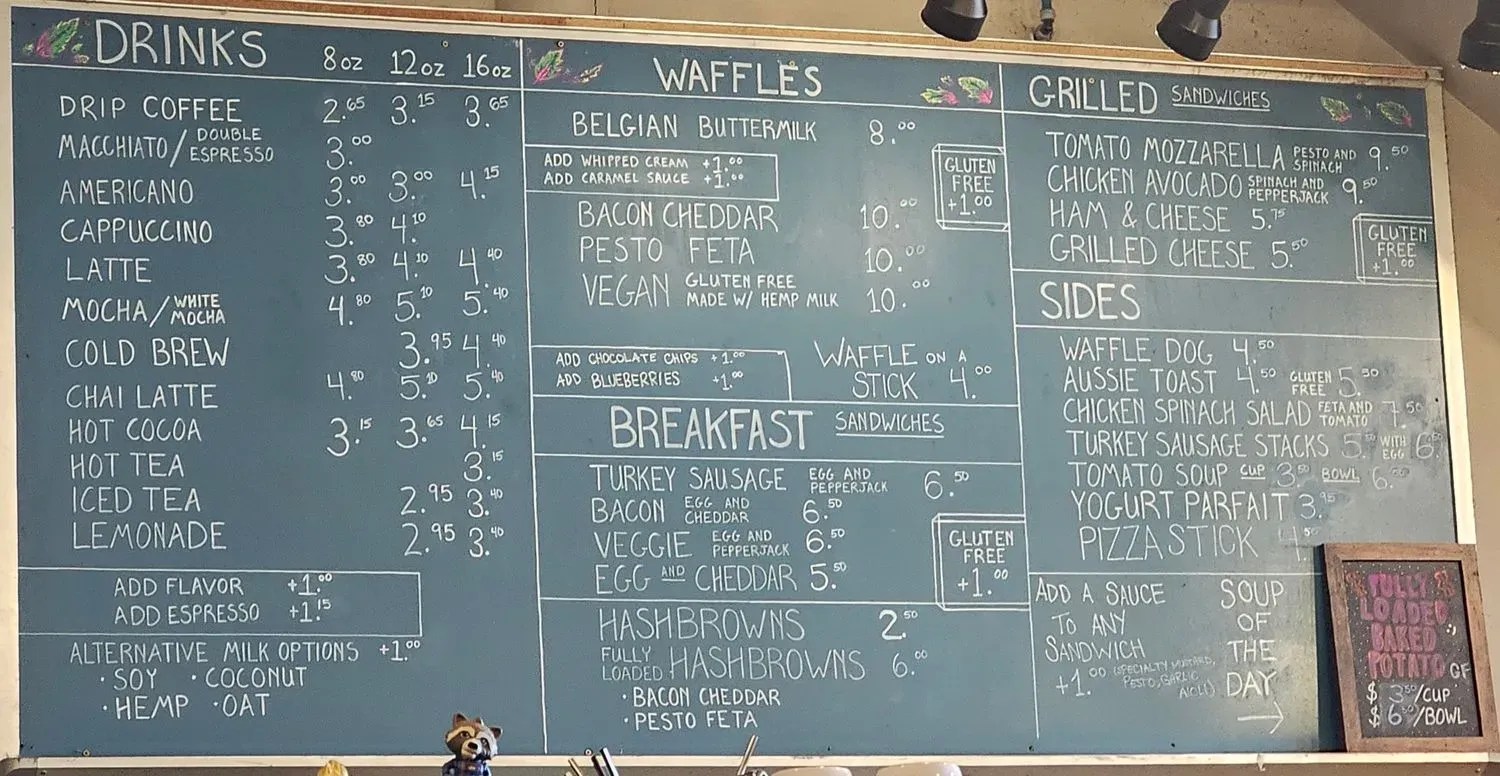 DRINKS 8oz 12oz 16oz
DRIP COFFEE 2.65 3.15 3.65
MACCHIATO/DOUBLE ESPRESSO 3.00
AMERICANO 3.00 3.00 4.15
CAPPUCCINO 3.80 4.10
LATTE 3.80 4.10 4.40
MOCHA/WHITE MOCHA 4.80 5.10 5.40
COLD BREW 3.95 4.40
CHAI LATTE 4.80 5.10 5.40
HOT COCOA 3.15 3.65 4.15
HOT TEA 3.15
ICED TEA 2.95 3.40
LEMONADE 2.95 3.40
ADD FLAVOR +1.00
ADD ESPRESSO +1.15
ALTERNATIVE MILK OPTIONS +1.00
· SOY · COCONUT
· HEMP · OAT
WAFFLES
BELGIAN BUTTERMILK 8.00
ADD WHIPPED CREAM +1.00
ADD CARAMEL SAUCE +1.00
GLUTEN
FREE
+1.00
BACON CHEDDAR 10.00
PESTO FETA 10.00
VEGAN GLUTEN FREE MADE W/ HEMP MILK 10.00
ADD CHOCOLATE CHIPS +1.00
ADD BLUEBERRIES +1.00
WAFFLE ON A
STICK 4.00
BREAKFAST SANDWICHES
TURKEY SAUSAGE EGG AND PEPPERJACK 6.50
BACON EGG AND CHEDDAR 6.50
VEGGIE EGG AND PEPPERJACK 6.50
EGG AND CHEDDAR 5.50
GLUTEN
FREE
+1.00
HASHBROWNS 2.50
FULLY LOADED HASHBROWNS 6.00
· BACON CHEDDAR
· PESTO FETA
GRILLED SANDWICHES
TOMATO MOZZARELLA PESTO AND SPINACH 9.50
CHICKEN AVOCADO SPINACH AND PEPPERJACK 9.50
HAM & CHEESE 5.75
GRILLED CHEESE 5.50
GLUTEN
FREE
+1.00
SIDES
WAFFLE DOG 4.50
AUSSIE TOAST 4.50 GLUTEN FREE 5.50
CHICKEN SPINACH SALAD FETA AND TOMATO 7.50
TURKEY SAUSAGE STACKS 5. WITH EGG 6.
TOMATO SOUP CUP 3.50 BOWL 6.
YOGURT PARFAIT 3.95
PIZZA STICK 4.50
ADD A SAUCE
TO ANY
SANDWICH
+1.00 (SPECIALTY MUSTARD,
PESTO, GARLIC
AIOLI)
SOUP
OF
THE
DAY
→
FULLY
LOADED
BAKED
POTATO GF
$ 3.50/CUP
$ 6.50/BOWL